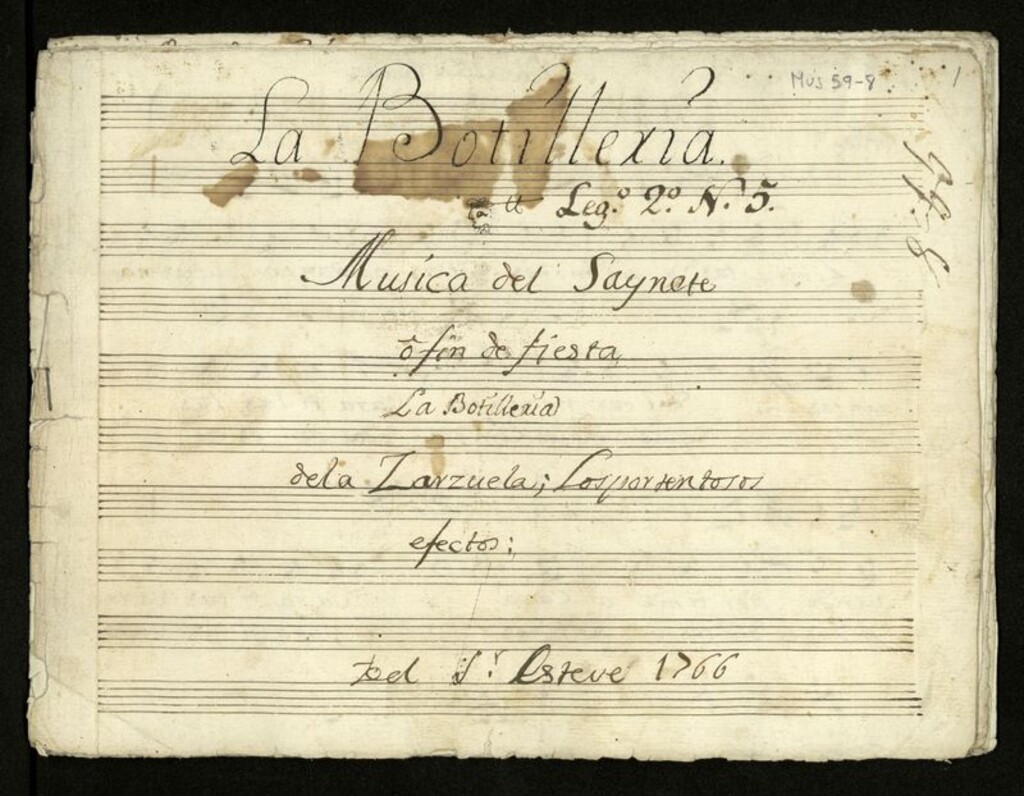 Mus 59-8
1
La Botilleria.
Leg.º 2.º N. 5.
Musica del Saynete
ô fin de fiesta
La Botilleria
dela Zarzuela; Los portentosos
efectos;
Del S.r Esteve 1766